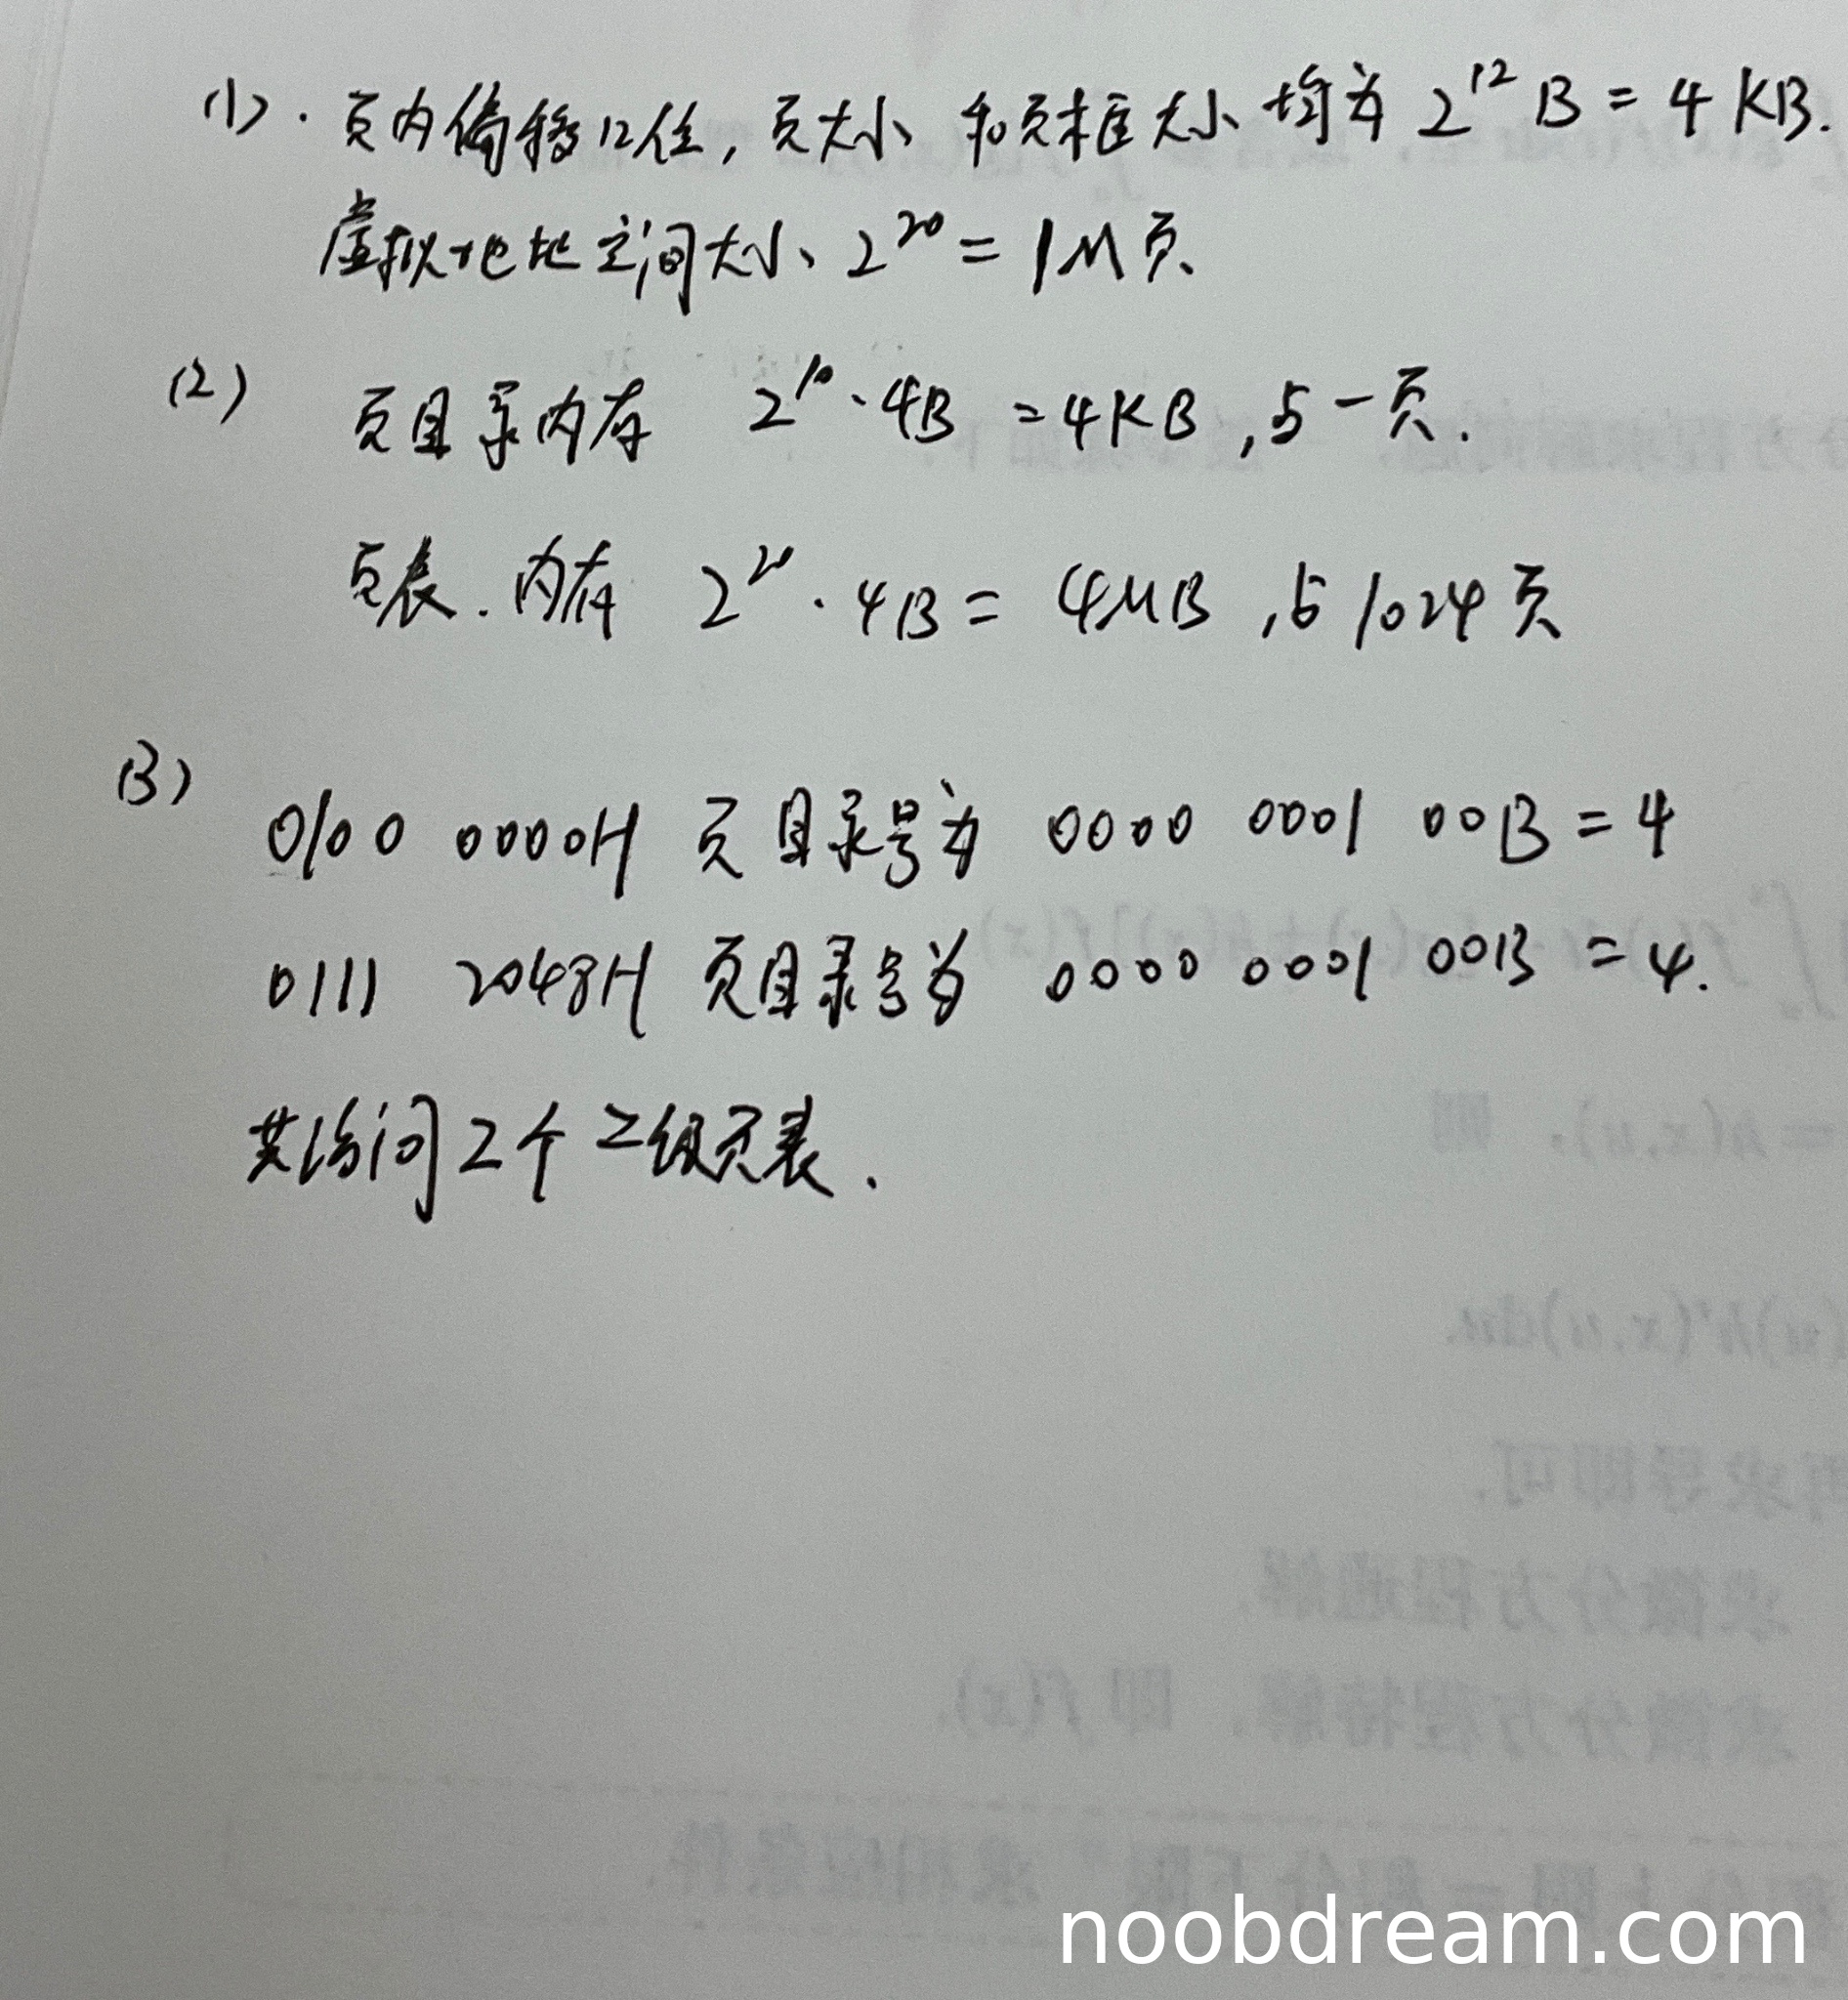 (1). 页内偏移12位, 页大小和页框大小均为 2^12 B = 4 KB.
虚拟地址空间大小、2^20 = 1M页、
(2) 页目录内存 2^10 · 4B = 4KB, 占一页.
页表. 内存 2^20 · 4B = 4MB, 占1024页
(3)
0100 0000H 页目录号为 0000 0001 00B = 4
0111 2048H 页目录号为 0000 0001 00B = 4.
共访问2个二级页表.
noobdream.com